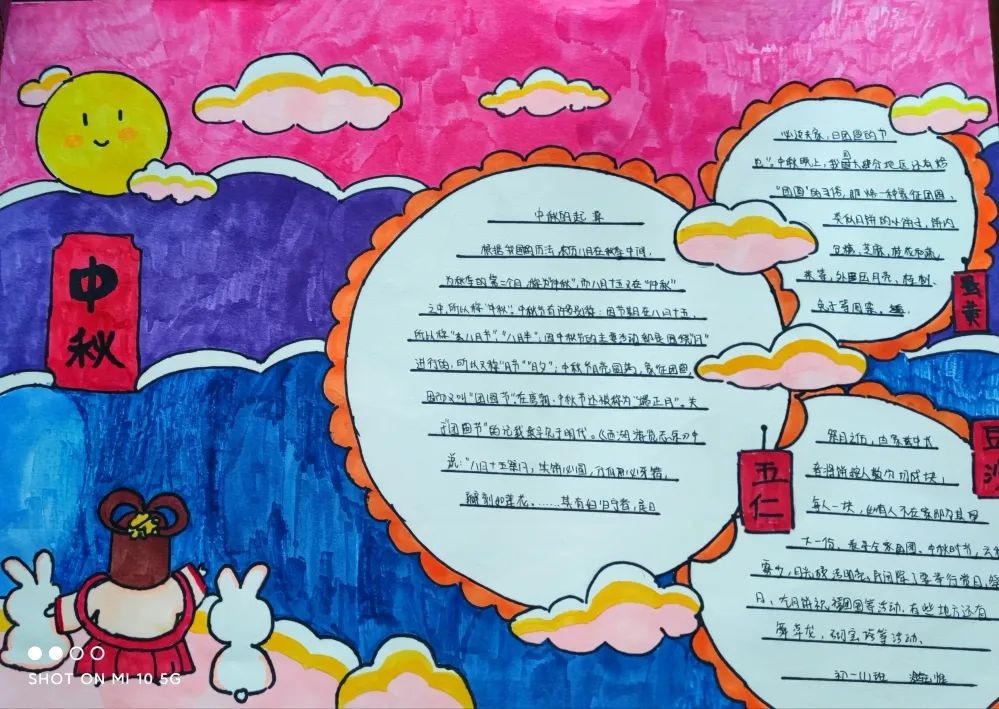 中秋
中秋的起源
根据我国的历法,农历八月在秋季中间,
为秋季的第二个月,称为"仲秋",而八月十五又在"仲秋"
之中,所以称"中秋"。中秋节有许多别称:因节期在八月十五,
所以称"八月节"、"八月半";因中秋节的主要活动都是围绕"月"
进行的,所以又称"月节""月夕";中秋节月亮圆满,象征团圆,
因而又叫"团圆节"。在唐朝,中秋节还被称为"端正月"。关
于"团圆节"的记载最早见于明代。《西湖游览志余》中
说:"八月十五
花。……其有妇归宁者,是日
必返夫家,曰团圆的节
也"。中秋晚上,我国大部分地区还有烙
"团圆"的习俗,即烙一种象征团圆、
类似月饼的小饼子,饼内
包糖、芝麻、桂花和蔬
菜等,外压月亮、桂树、
兔子等图案。
蛋黄
五仁
豆沙
祭月之后,由家中长
者将饼按人数分切成块,
每人一块,如有人不在家即为其留
一份,表示全家团圆。中秋时节,云
月、吃月饼祝福团圆等活动,有些地方还有
舞草龙,砌宝塔等活动。
初一(1)班
SHOT ON MI 10 5G